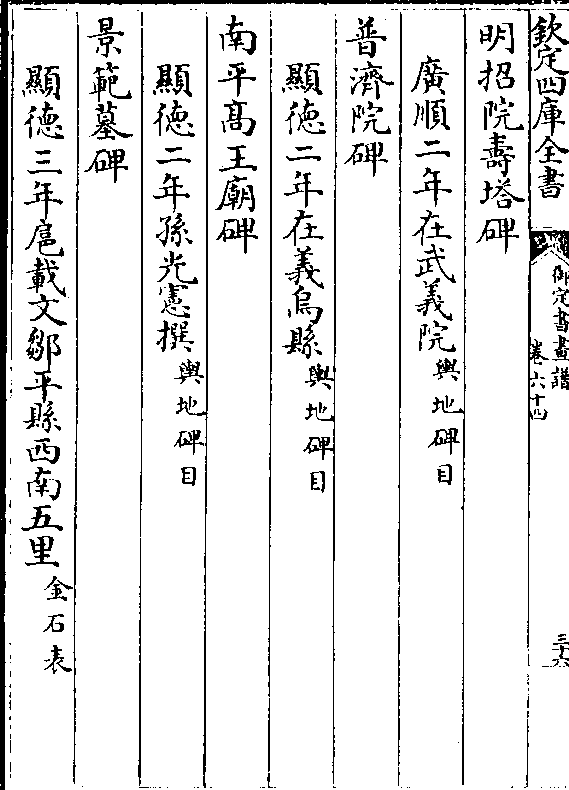 欽定四庫全書
御定書畫譜
卷六十四
三十六
明招院壽塔碑
廣順二年在武義院輿地碑目
普濟院碑
顯徳二年在義烏縣輿地碑目
南平髙王廟碑
顯徳二年孫光憲撰輿地碑目
景範墓碑
顯徳三年扈載文鄒平縣西南五里金石表